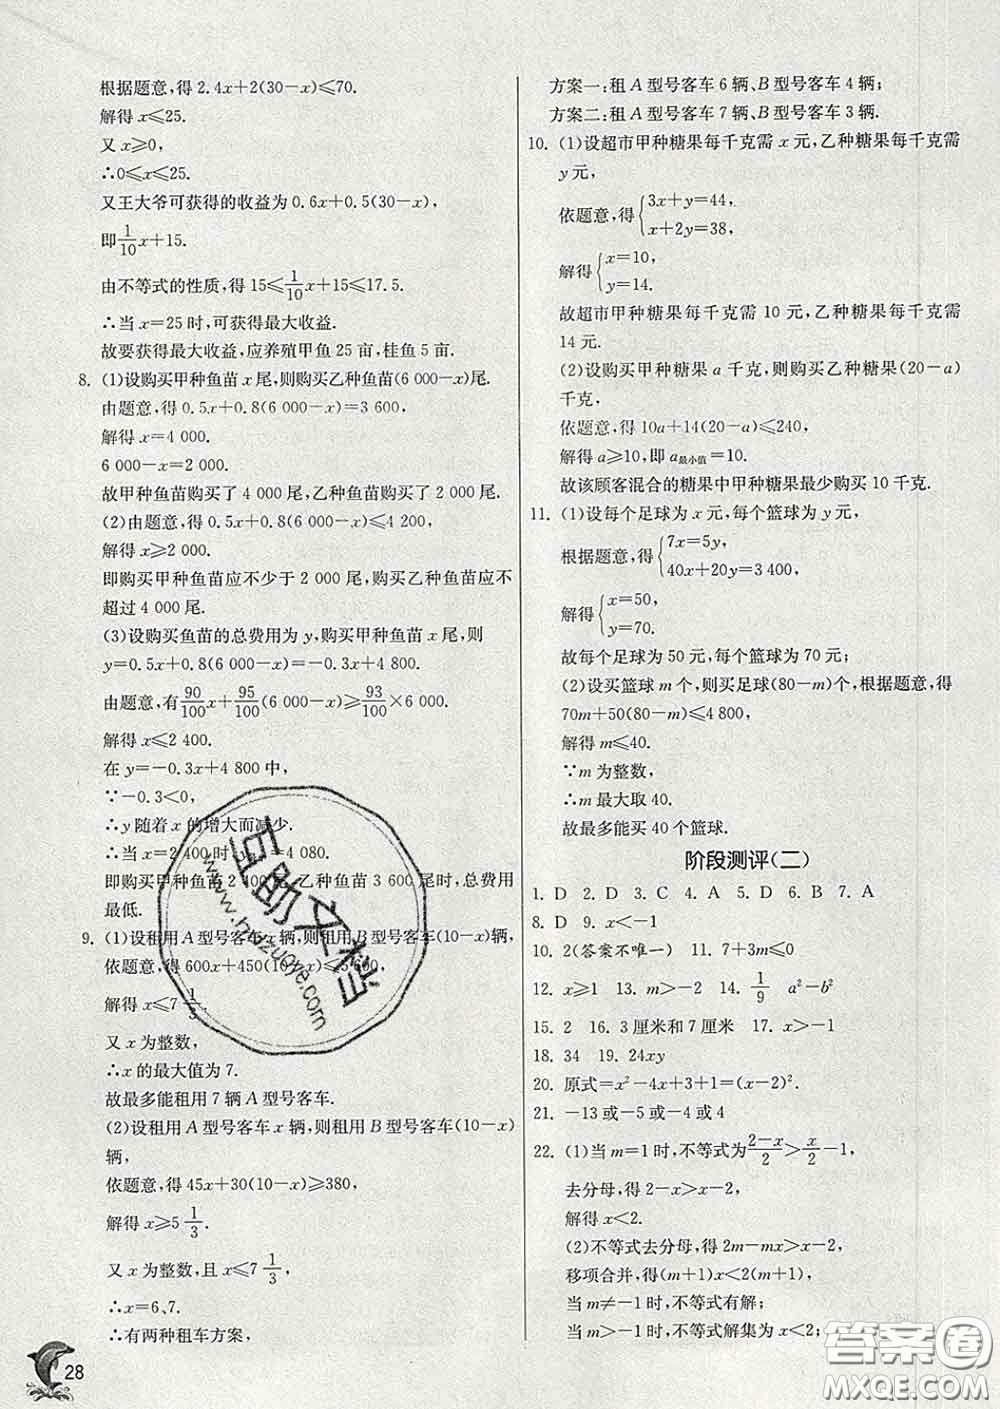 根据题意,得 2.4x+2(30-x)≤70.
解得 x≤25.
又 x≥0,
∴0≤x≤25.
又王大爷可获得的收益为 0.6x+0.5(30-x),
即1/10x+15.
由不等式的性质,得 15≤1/10x+15≤17.5.
∴当 x=25 时,可获得最大收益.
故要获得最大收益,应养殖甲鱼 25 亩,桂鱼 5 亩.
8. (1)设购买甲种鱼苗 x 尾,则购买乙种鱼苗(6 000-x)尾.
由题意,得 0.5x+0.8(6 000-x)=3 600,
解得 x=4 000.
6 000-x=2 000.
故甲种鱼苗购买了 4 000 尾,乙种鱼苗购买了 2 000 尾.
(2)由题意,得 0.5x+0.8(6 000-x)≤4 200,
解得 x≥2 000.
即购买甲种鱼苗应不少于 2 000 尾,购买乙种鱼苗应不
超过 4 000 尾.
(3)设购买鱼苗的总费用为 y,购买甲种鱼苗 x 尾,则
y=0.5x+0.8(6 000-x)=-0.3x+4 800.
由题意,有90/100x+95/100(6 000-x)≥93/100×6 000.
解得 x≤2 400.
在 y=-0.3x+4 800 中,
∵-0.3<0,
∴y 随着 x 的增大而减少.
∴当 x=2 400 时,y =4 080.
即购买甲种鱼苗 2 400 尾,乙种鱼苗 3 600 尾时,总费用
最低.
9. (1)设租用 A 型号客车 x 辆,则租用 B 型号客车(10-x)辆,
依题意,得 600x+450(10-x)≤5 600,
解得 x≤7 1/3.
又 x 为整数,
∴x 的最大值为 7.
故最多能租用 7 辆 A 型号客车.
(2)设租用 A 型号客车 x 辆,则租用 B 型号客车(10-x)
辆,
依题意,得 45x+30(10-x)≥380,
解得 x≥5 1/3.
又 x 为整数,且 x≤7 1/3,
∴x=6、7.
∴有两种租车方案,
28
方案一:租 A 型号客车 6 辆、B 型号客车 4 辆;
方案二:租 A 型号客车 7 辆、B 型号客车 3 辆.
10. (1)设超市甲种糖果每千克需 x 元,乙种糖果每千克需
y 元,
依题意,得{3x+y=44,
x+2y=38,
解得{x=10,
y=14.
故超市甲种糖果每千克需 10 元,乙种糖果每千克需
14 元.
(2)设购买甲种糖果 a 千克,则购买乙种糖果(20-a)
千克,
依题意,得 10a+14(20-a)≤240,
解得 a≥10,即 a最小值=10.
故该顾客混合的糖果中甲种糖果最少购买 10 千克.
11. (1)设每个足球为 x 元,每个篮球为 y 元,
根据题意,得{7x=5y,
40x+20y=3 400,
解得{x=50,
y=70.
故每个足球为 50 元,每个篮球为 70 元;
(2)设买篮球 m 个,则买足球(80-m)个,根据题意,得
70m+50(80-m)≤4 800,
解得 m≤40.
∵m 为整数,
∴m 最大取 40.
故最多能买 40 个篮球.
阶段测评(二)
1. D 2. D 3. C 4. A 5. D 6. B 7. A
8. D 9. x<-1
10. 2(答案不唯一) 11. 7+3m≤0
12. x≥1 13. m>-2 14. 1/9 a²-b²
15. 2 16. 3 厘米和 7 厘米 17. x>-1
18. 34 19. 24xy
20. 原式=x²-4x+3+1=(x-2)².
21. -13 或-5 或-4 或 4
22. (1)当 m=1 时,不等式为(2-x)/2>x/2-1,
去分母,得 2-x>x-2,
解得 x<2.
(2)不等式去分母,得 2m-mx>x-2,
移项合并,得(m+1)x<2(m+1),
当 m≠-1 时,不等式有解;
当 m>-1 时,不等式解集为 x<2;
互助文档
www.hdzuoye.com
答案圈
MXQE.COM